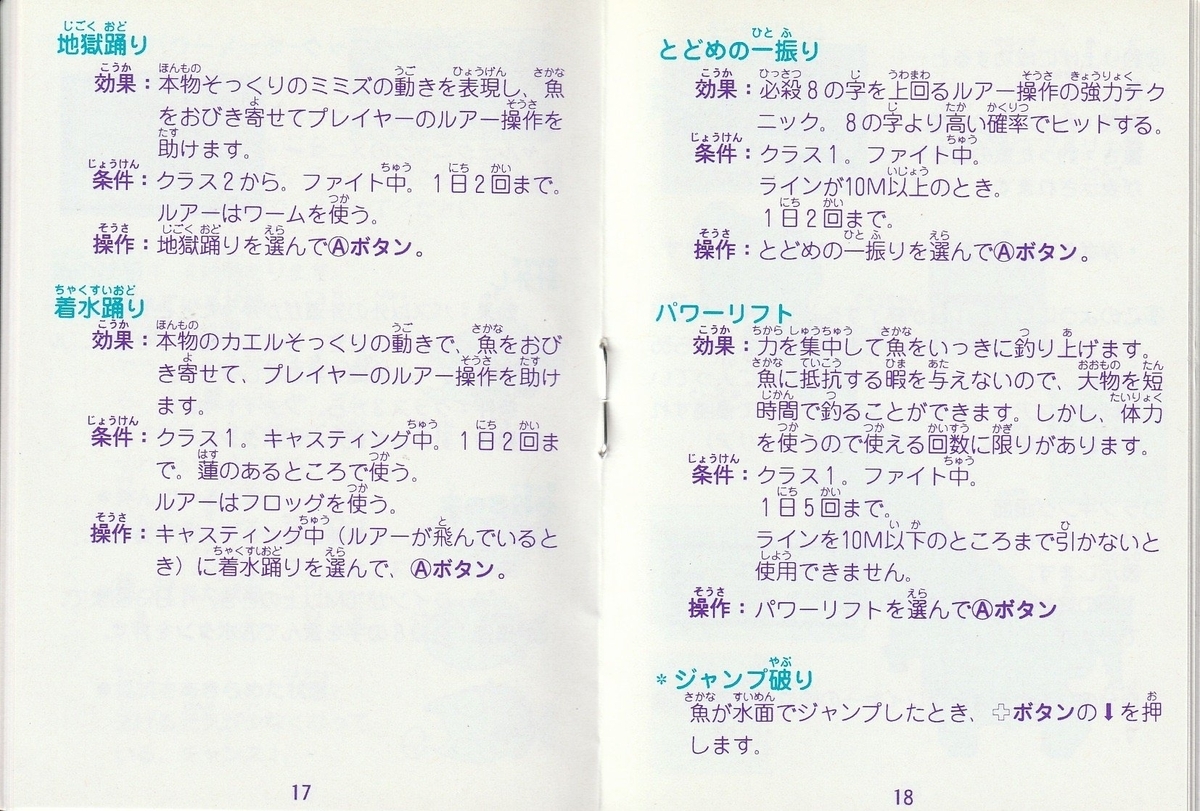 地獄踊り
効果：本物そっくりのミミズの動きを表現し、魚
をおびき寄せてプレイヤーのルアー操作を
助けます。
条件：クラス2から。ファイト中。1日2回まで。
ルアーはワームを使う。
操作：地獄踊りを選んでⒶボタン。
着水踊り
効果：本物のカエルそっくりの動きで、魚をおび
き寄せて、プレイヤーのルアー操作を助け
ます。
条件：クラス1。キャスティング中。1日2回ま
で。蓮のあるところで使う。
ルアーはフロッグを使う。
操作：キャスティング中（ルアーが飛んでいると
き）に着水踊りを選んで、Ⓐボタン。
17
とどめの一振り
効果：必殺8の字を上回るルアー操作の強力テク
ニック。8の字より高い確率でヒットする。
条件：クラス1。ファイト中。
ラインが10M以上のとき。
1日2回まで。
操作：とどめの一振りを選んでⒶボタン。
パワーリフト
効果：力を集中して魚をいっきに釣り上げます。
魚に抵抗する暇を与えないので、大物を短
時間で釣ることができます。しかし、体力
を使うので使える回数に限りがあります。
条件：クラス1。ファイト中。
1日5回まで。
ラインを10M以下のところまで引かないと
使用できません。
操作：パワーリフトを選んでⒶボタン
＊ジャンプ破り
魚が水面でジャンプしたとき、✚ボタンの⬇を押
します。
18